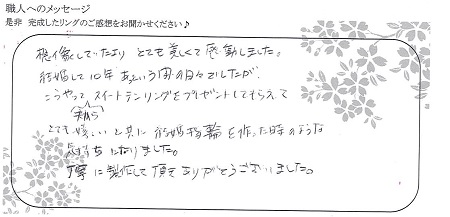 職人へのメッセージ
是非 完成したリングのご感想をお聞かせください♪
想像していたよりとても美しくて感動しました。
結婚して10年あっという間の日々でしたが、
こうやってスイートテンリングをプレゼントしてもらえて
とても嬉しいと共に結婚指輪を作った時のような
気持ちになりました。
丁寧に製作して頂きありがとうございました。